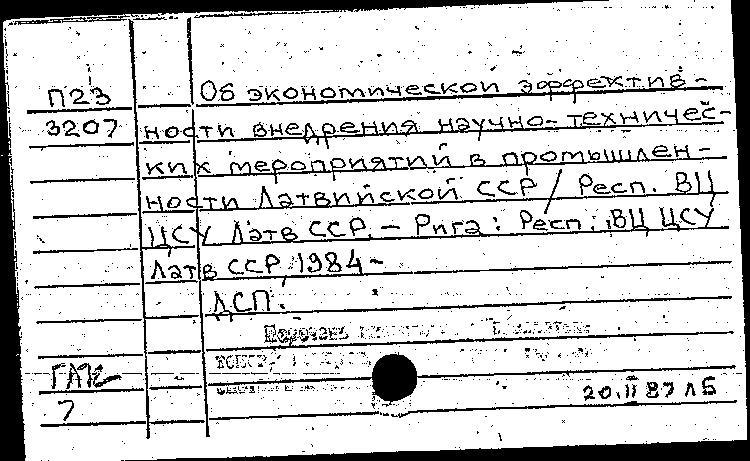 П23 Об экономической эффектив-
3207 ности внедрения научно-техничес-
ких мероприятий в промышлен-
ности Латвийской ССР / Респ. ВЦ
ЦСУ Латв ССР. – Рига: Респ. ВЦ ЦСУ
Латв ССР, 1984 –
ДСП.
20.II 87 ЛБ
7